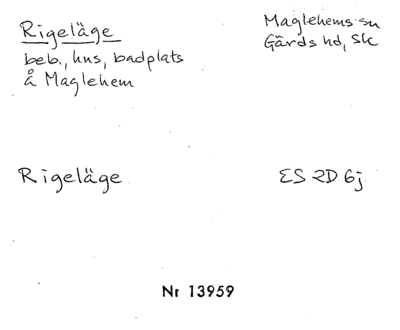 Rigeläge
beb., hus, badplats
å Maglehem
Maglehems sn
Gärds hd, Sk
Rigeläge
ES 2D 6j
Nr 13959